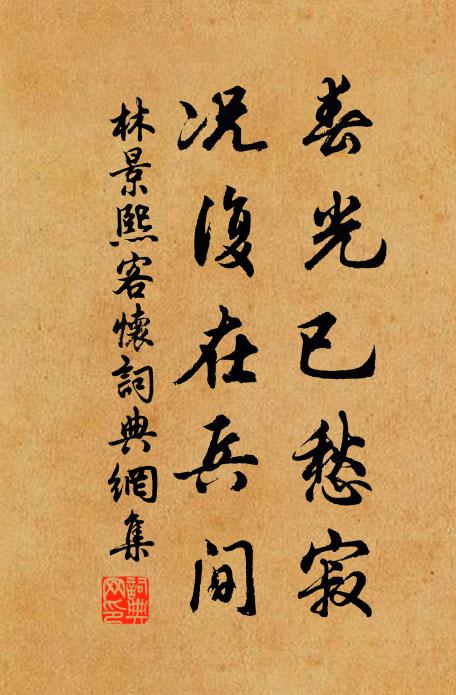 春光已愁寂
况復在兵間
林景熙客懷詞典網集
詞典網印